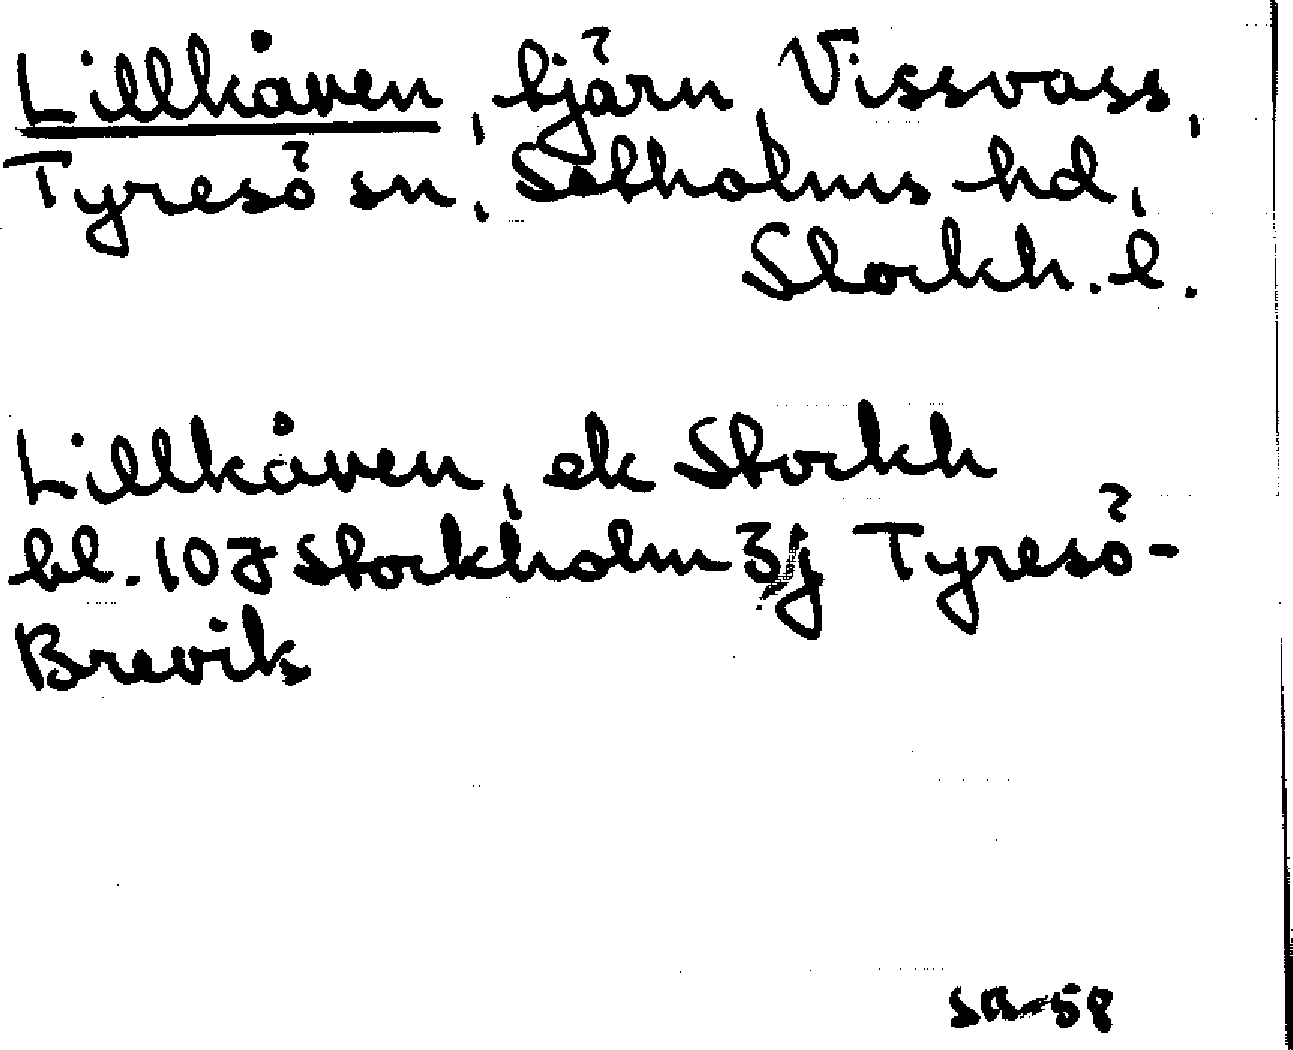 Lillkåven, tjärn, Vissvass,
Tyresö sn, Sotholms hd,
Stockh. l.
Lillkåven, ek Stockh
bl. 107 Stockholm 3j Tyresö-
Brevik
sa-58